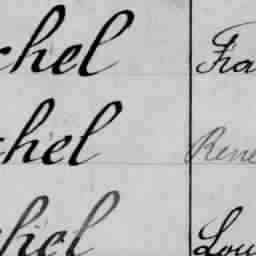 chel Fra
chel Rene
chel Lou